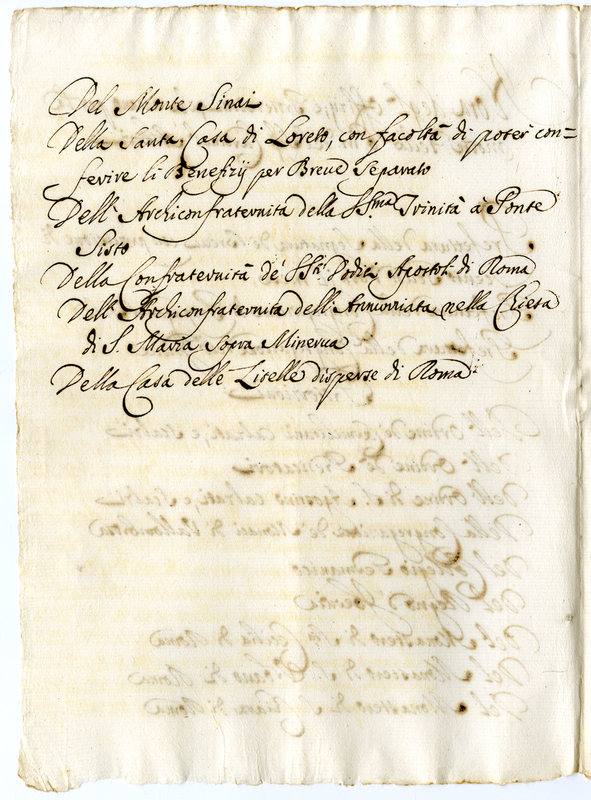 Del Monte Sinai
Della Santa Casa di Loreto, con facoltà di poter con=
ferire li Benefizij per Breve Separato
Dell' Archiconfraternita della SS.ma Trinità à Ponte
Sisto
Della Confraternità de' SS.ti Dodici Apostoli di Roma
Dell' Archiconfraternita dell' Annunziata nella Chiesa
di S. Maria Sopra Minerva
Della Casa delle Zitelle disperse di Roma